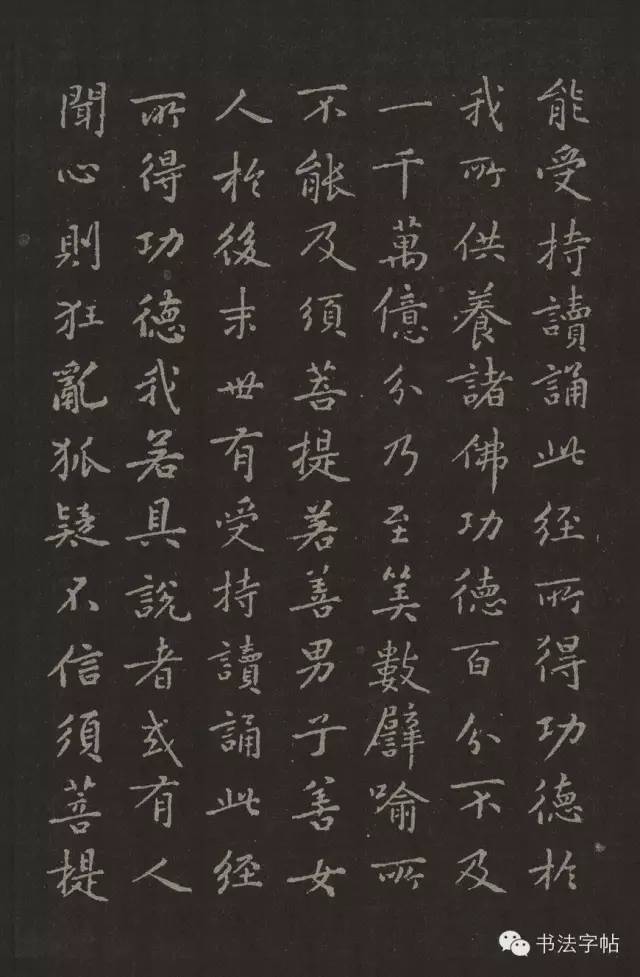 能受持讀誦此經所得功德於
我所供養諸佛功德百分不及
一千萬億分乃至筭數譬喻所
不能及須菩提若善男子善女
人於後末世有受持讀誦此經
所得功德我若具說者或有人
聞心則狂亂狐疑不信須菩提
书法字帖